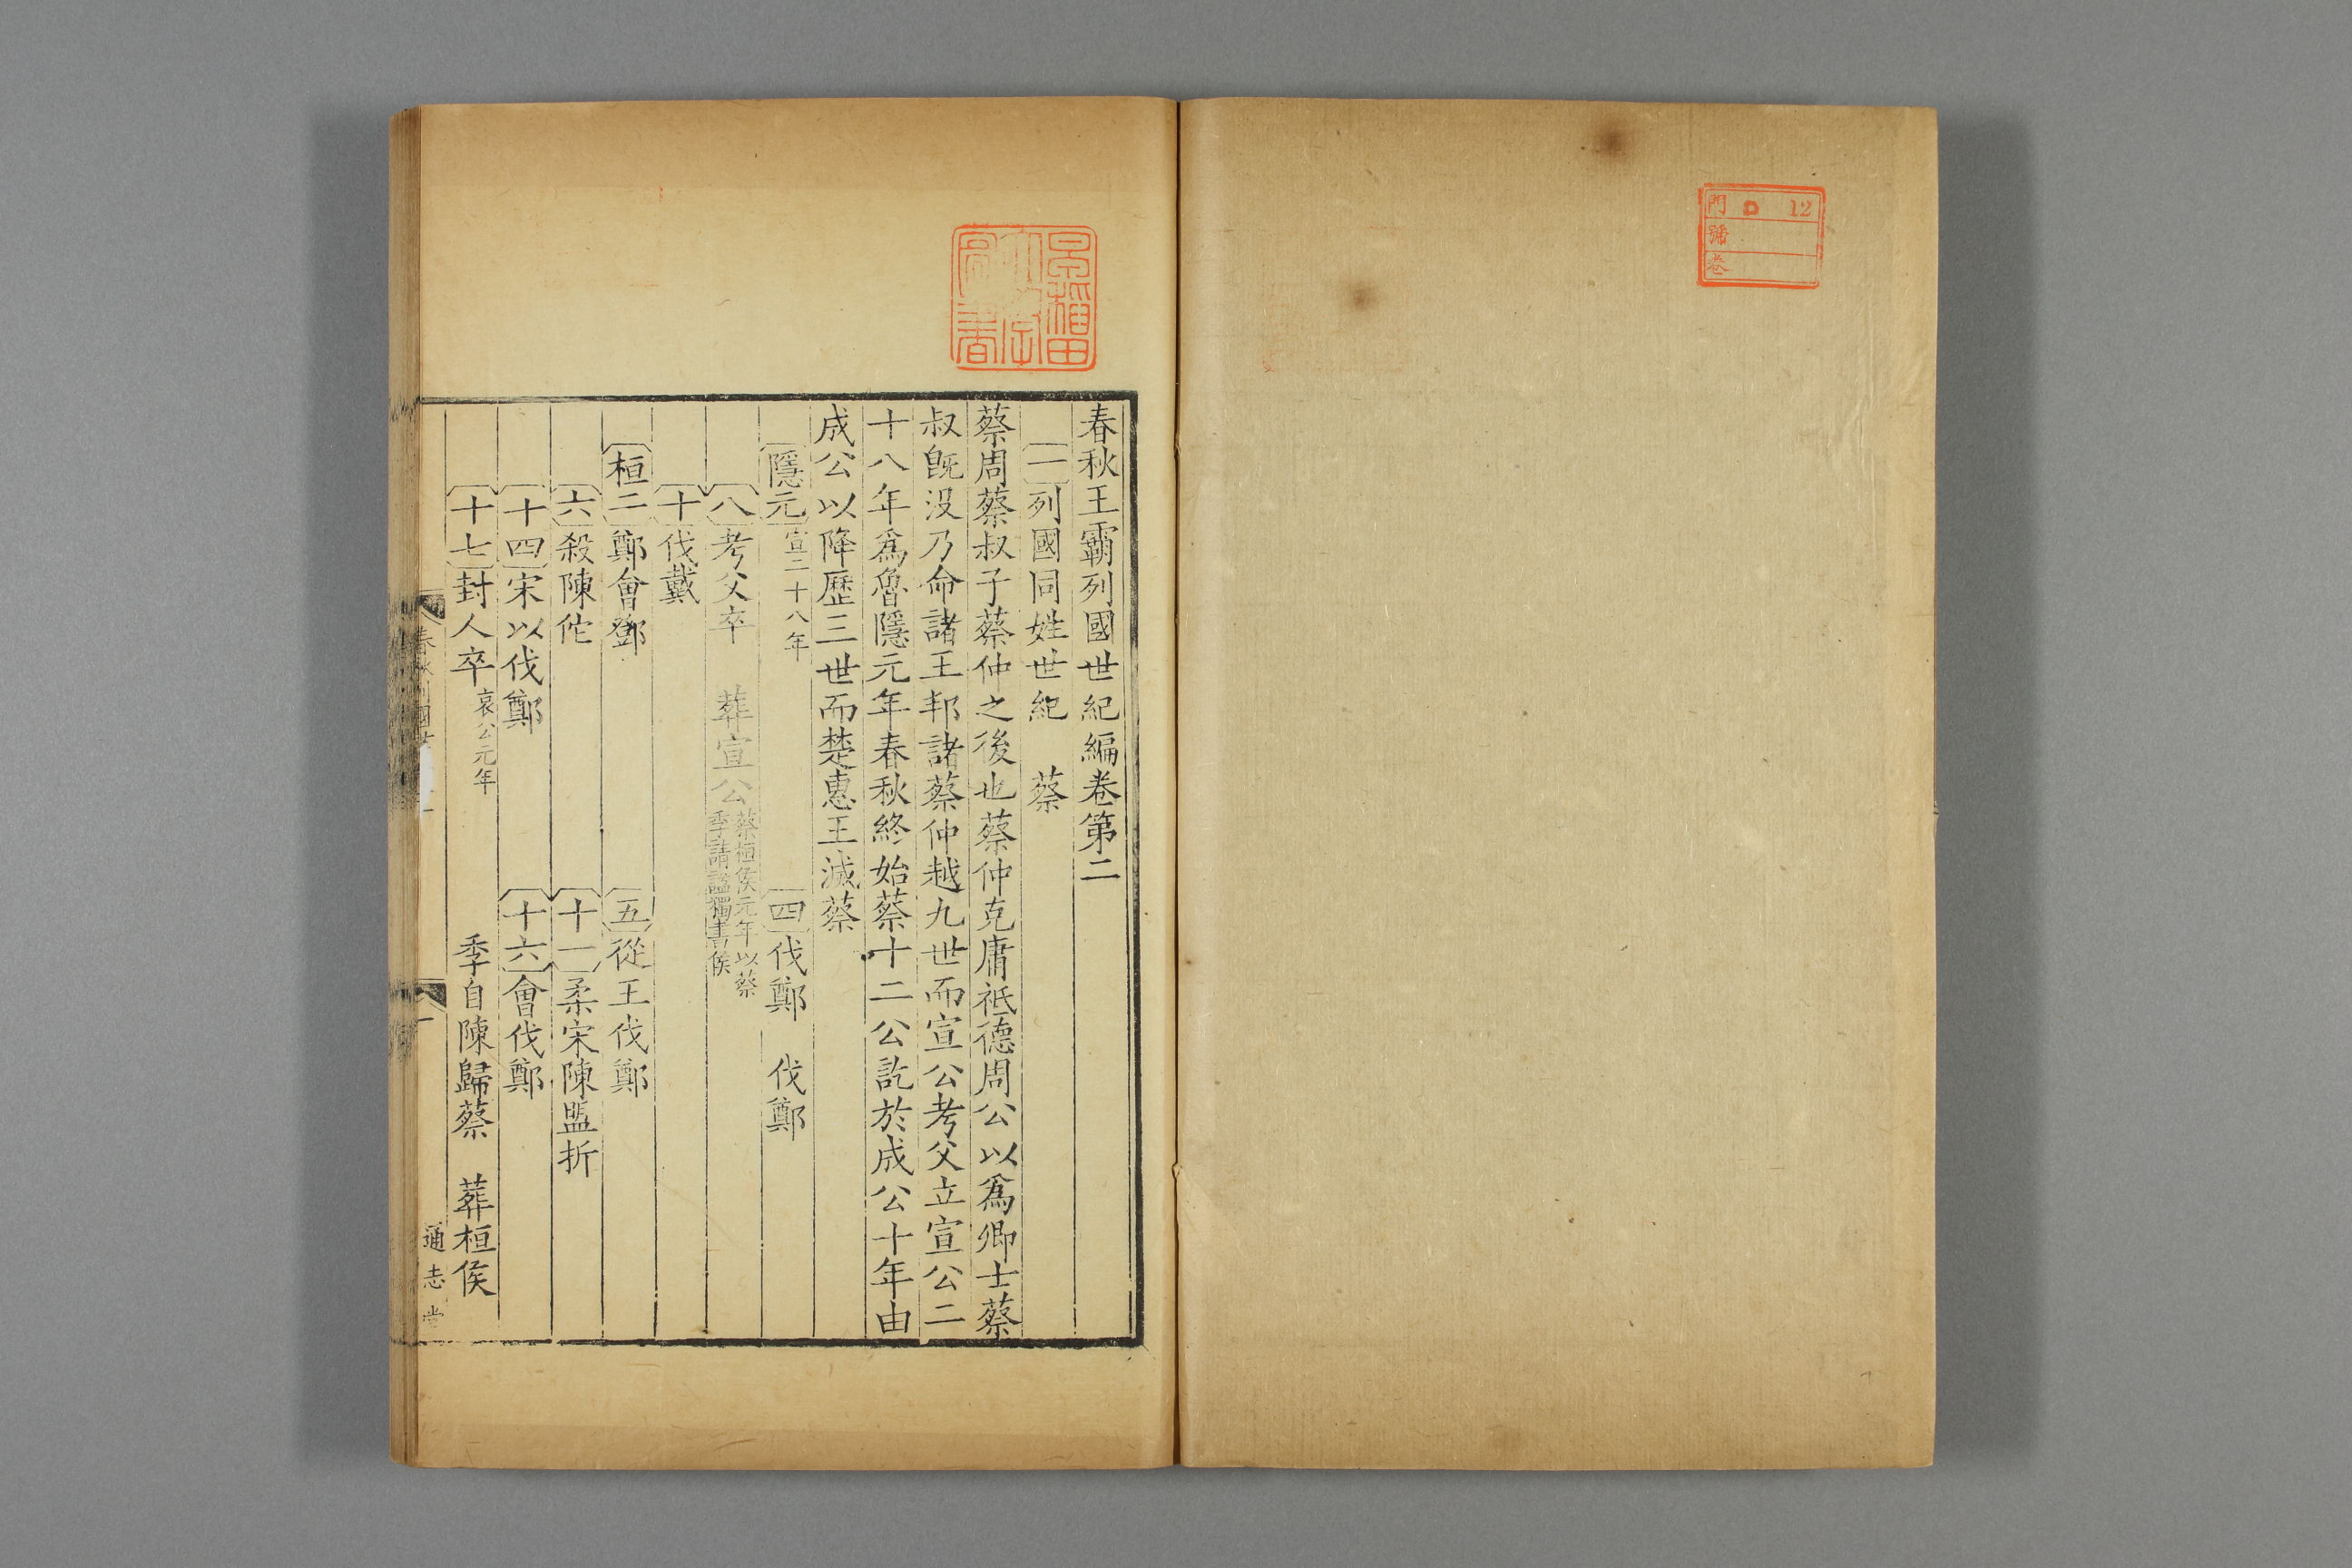 門 D 12
號
卷
春秋王霸列國世紀編卷第二
一列國同姓世紀 蔡
蔡周蔡叔子蔡仲之後也蔡仲克庸祗德周公以爲卿士蔡
叔旣没乃命諸王邦諸蔡仲越九世而宣公考父立宣公二
十八年爲魯隱元年春秋終始蔡十二公訖於成公十年由
成公以降歷三世而楚惠王滅蔡
隱元宣二十八年 四伐鄭 伐鄭
八考父卒 葬宣公蔡桓侯元年以蔡季請謚獨書侯
十伐戴
桓二鄭會鄧 五從王伐鄭
六殺陳佗 十一柔宋陳盟折
十四宋以伐鄭 十六會伐鄭
十七封人卒哀公元年 季自陳歸蔡 葬桓侯
通志堂